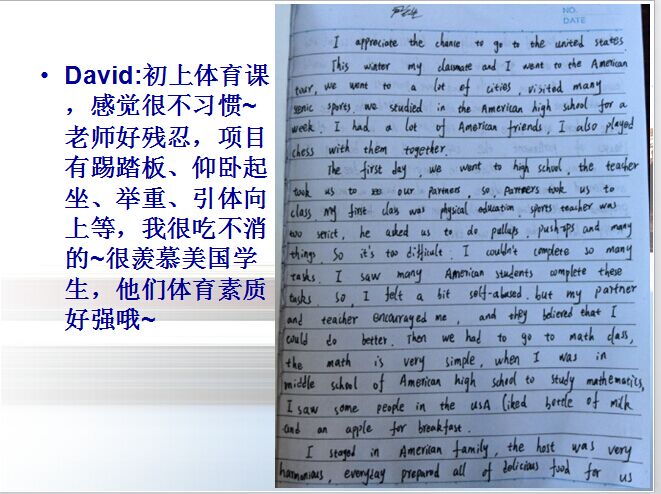 • David:初上体育课
，感觉很不习惯~
老师好残忍，项目
有踢踏板、仰卧起
坐、举重、引体向
上等，我很吃不消
的~很羡慕美国学
生，他们体育素质
好强哦~
NO.
DATE
I appreciate the chance to go to the united states
This winter my classmate and I went to the American
tour, we went to a lot of cities, visited many
scenic sports. we studied in the American high school for a
week. I had a lot of American friends, I also played
chess with them together.
The first day, we went to high school, the teacher
took us to our partners, so partners took us to
class my first class was physical education, sports teacher was
too strict, he asked us to do pullups, pushups and many
things. So it's too difficult. I couldn't complete so many
tasks. I saw many American students complete these
tasks. So, I felt a bit self-abased. but my partner
and teacher encourayed me, and they believed that I
could do better. Then we had to go to math class,
the math is very simple, when I was in
middle school of American high school to study mathematics,
I saw some people in the USA liked bottle of milk
and an apple for breakfast.
I stayed in American family, the host was very
harmonious, everyday prepared all of delicious food for us